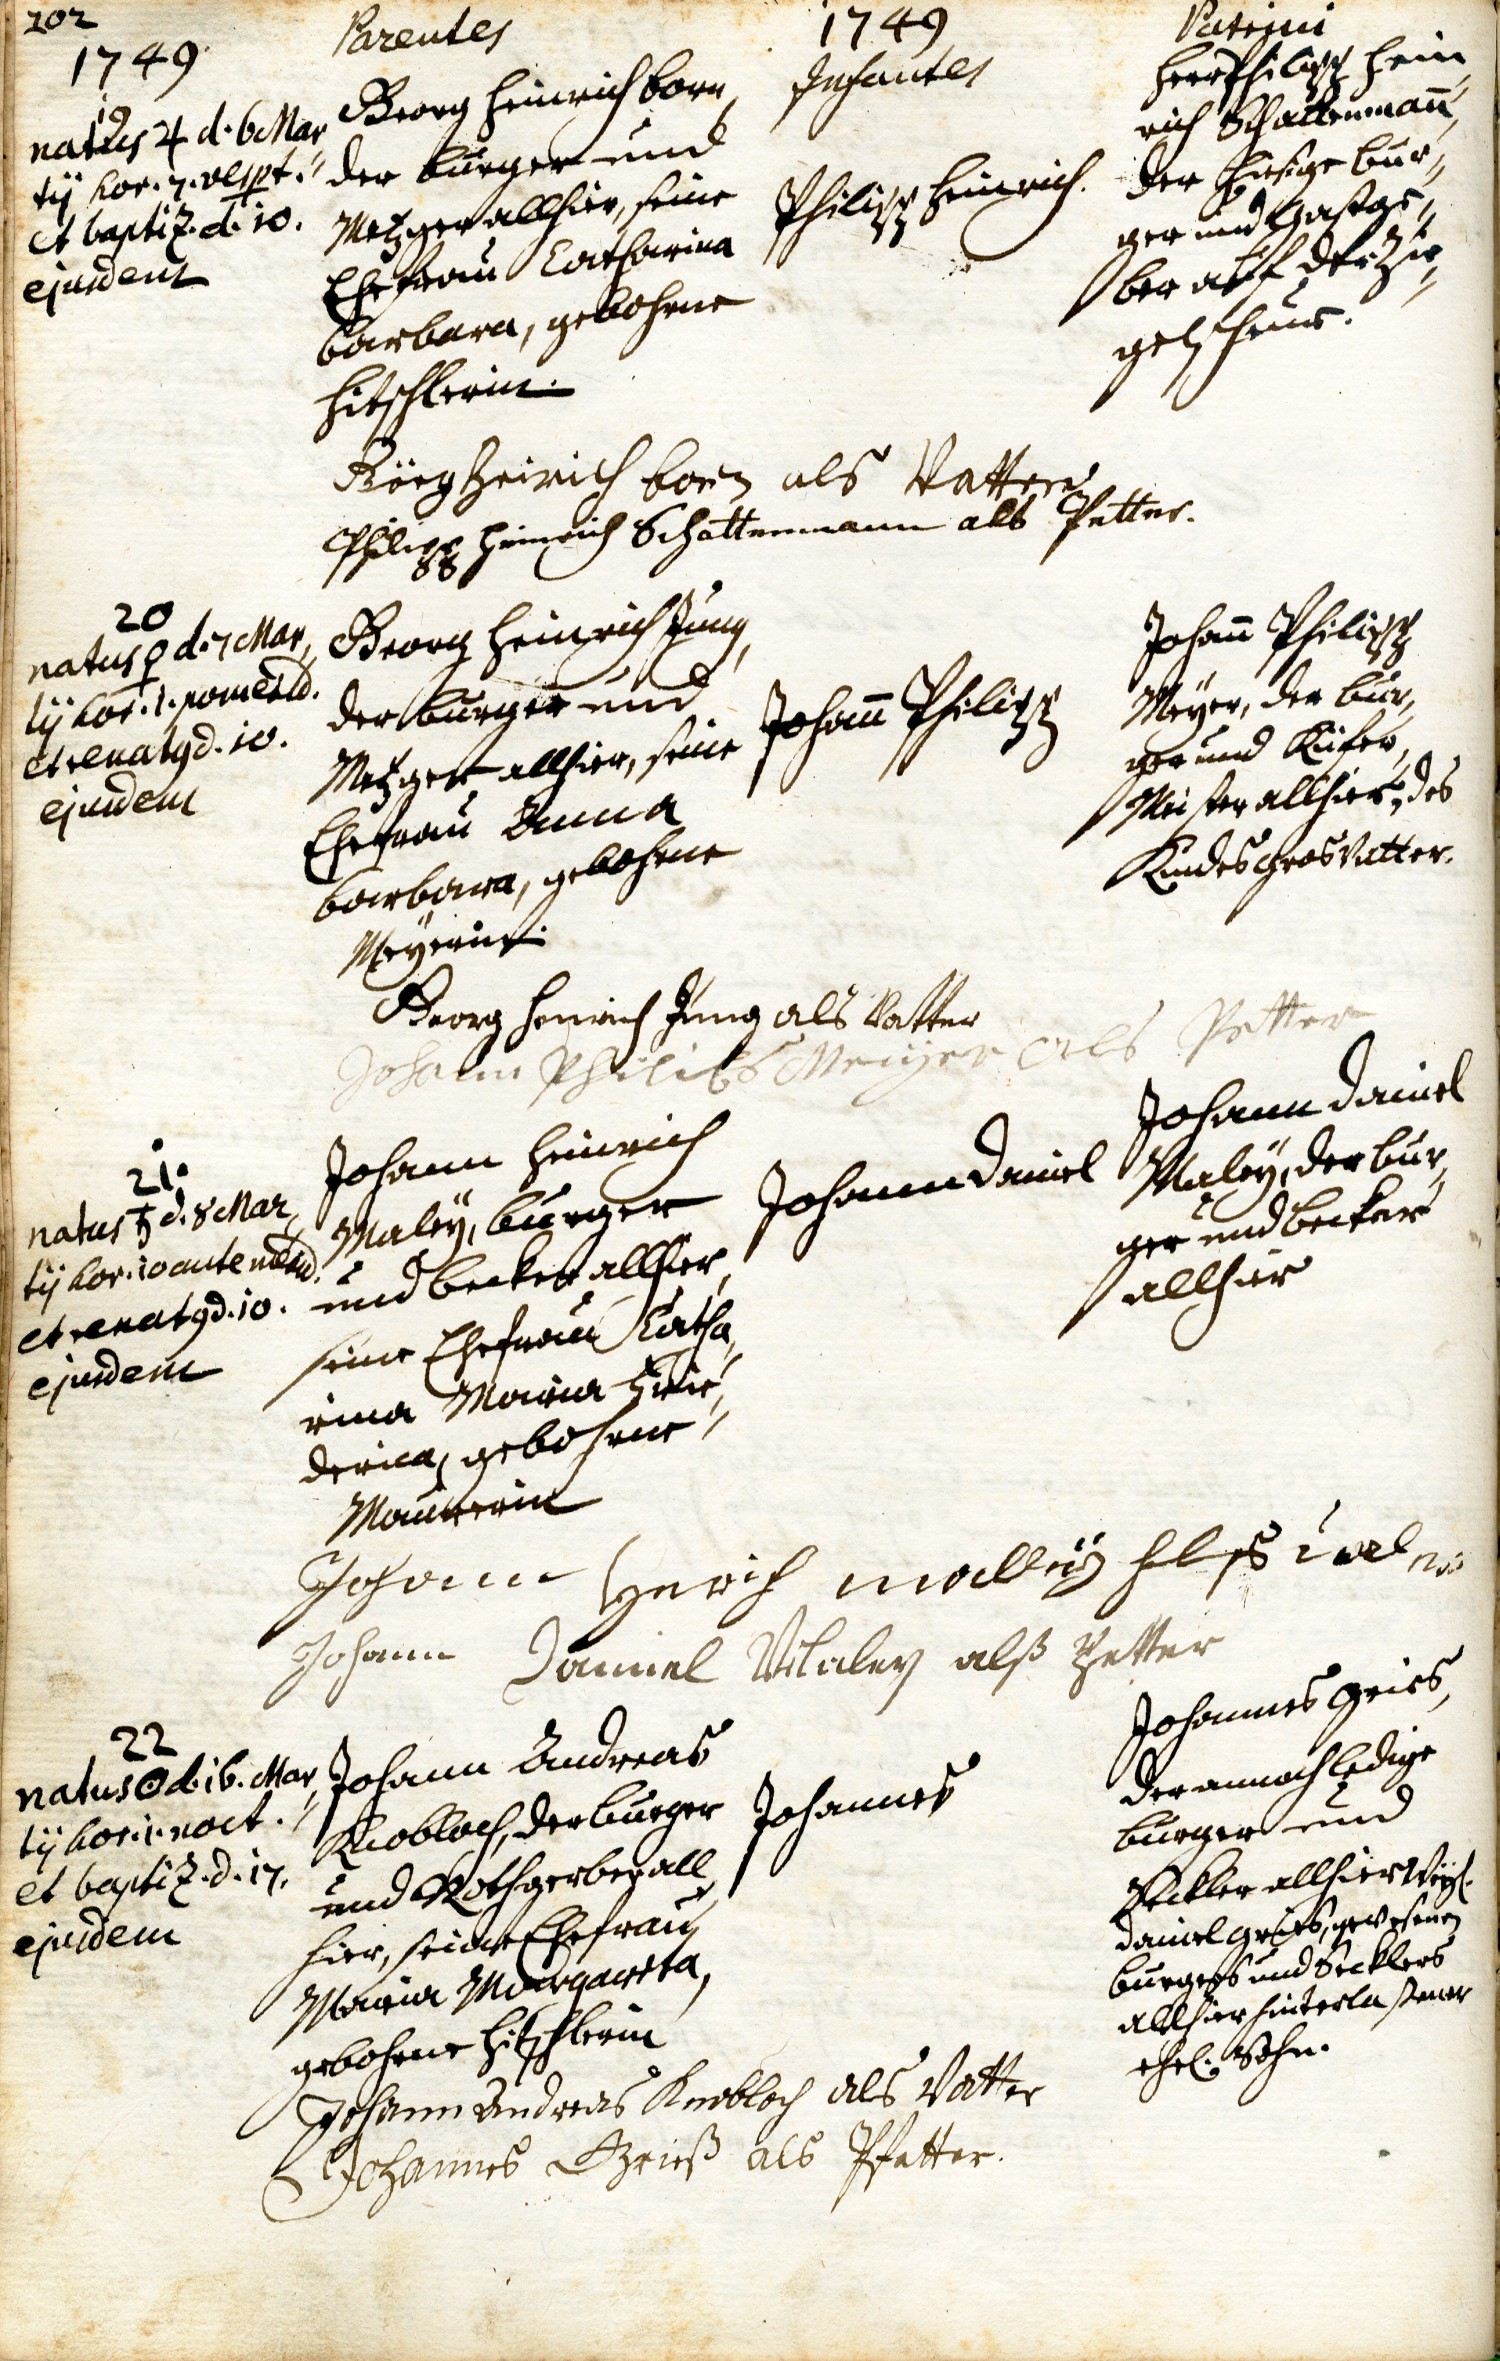 202
1749.
Parentes
1749
Infantes
Patrini
19
natus ♃ d. 6 Mar,
tij hor. 7. vespt.
et baptiz. d. 10.
ejusdem
Georg Heinrich Born,
der burger und
Metzger allhier, seine
Ehefrau Catharina
Barbara, gebohrne
Hitschlerin.
Philipp Heinrich.
Herr Philipp Hein,
rich Schattenmann,
der hiesige bur,
ger und Gastge,
ber auf der Zie,
gelscheur.
Görg Heirich born als Vatter
Philipp Heinrich Schattenmann als Petter.
20
natus ♀ d. 7 Mar,
tij hor. 1. pomerid.
et renatq d. 10.
ejusdem
Georg Heinrich Jung,
der burger und
Metzger allhier, seine
Ehefrau Anna
Barbara, gebohrne
Meyerin.
Johann Philipp
Johann Philipp
Meyer, der bur,
ger und Küfer,
Meister allhier, des
Kindes Grosvatter.
Georg Henrich Jung als Vatter
Johann Philibs Meyer als Petter
21.
natus ♄ d. 8 Mar,
tij hor. 10 ante merid.
et renatq d. 10.
ejusdem
Johann Heinrich
Maley, burger
und becker allhier,
seine Ehefrau Catha,
rina Maria Frie,
derica, gebohrne
Maurerin
Johann Daniel
Johann Daniel
Maley, der bur,
ger und becker
allhier
Johann Henrich malley
Johann Daniel Maley alß Petter
22
natus ☉ d. 16. Mar,
tij hor. 1. noct.
et baptiz. d. 17.
ejusdem
Johann Andreas
Knobloch, der burger
und Rothgerber all,
hier, seine Ehefrau
Maria Margareta,
gebohrne Hitschlerin
Johannes
Johannes Gries,
der annoch ledige
burger und
Seckler allhier Weyl.
Daniel Gries, gewesenen
burgers und Secklers
allhier hinterlaßener
ehel. Sohn.
Johann Andreas Knobloch als Vatter
Johannes Grieß als Pfetter.